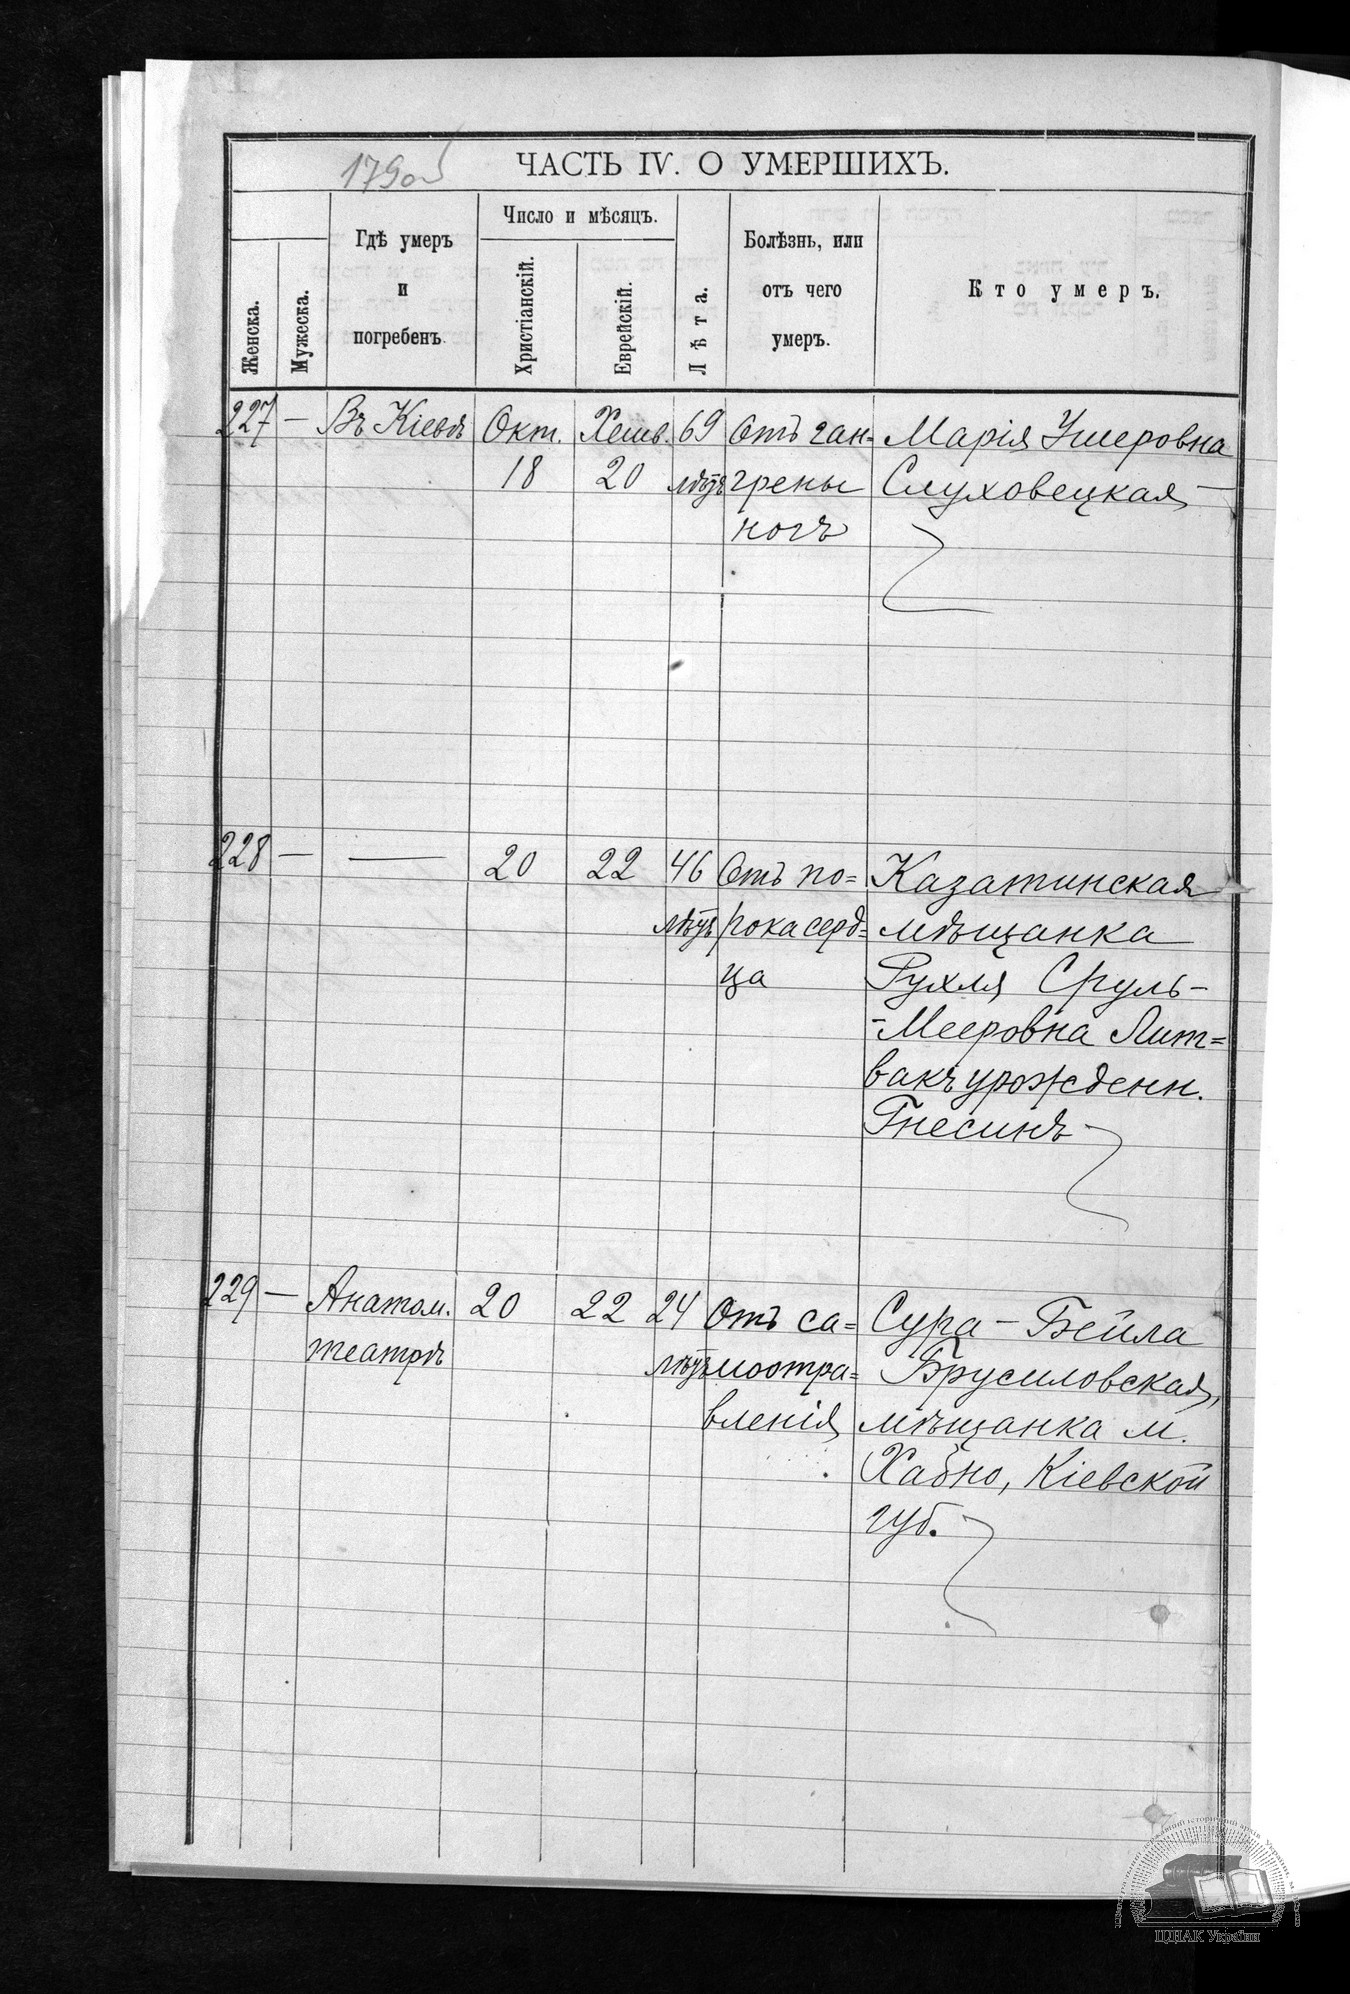 179об
ЧАСТЬ IV. О УМЕРШИХЪ.
Женска.
Мужеска.
Гдѣ умеръ
и
погребенъ
Число и мѣсяцъ.
Христіанскій.
Еврейскій.
Лѣта.
Болѣзнь, или
отъ чего
умеръ.
Кто умеръ.
227 — Въ Кіевѣ Окт. Хешв. 69 Отъ ган= Марія Ушеровна
18 20 лѣтъ грены Слуховецкая —
ногъ
228 — — 20 22 46 Отъ по= Казатинская
лѣтъ рока серд= мѣщанка
ца Рухля Сруль-
-Мееровна Лит=
вакъ урожденн.
Гнесинъ
229 — Анатом. 20 22 24 Отъ са= Сура - Бейла
театрѣ лѣтъ моотра= Брусиловская,
вленія мѣщанка м.
Хабно, Кіевской
губ.
ЦДІАК України